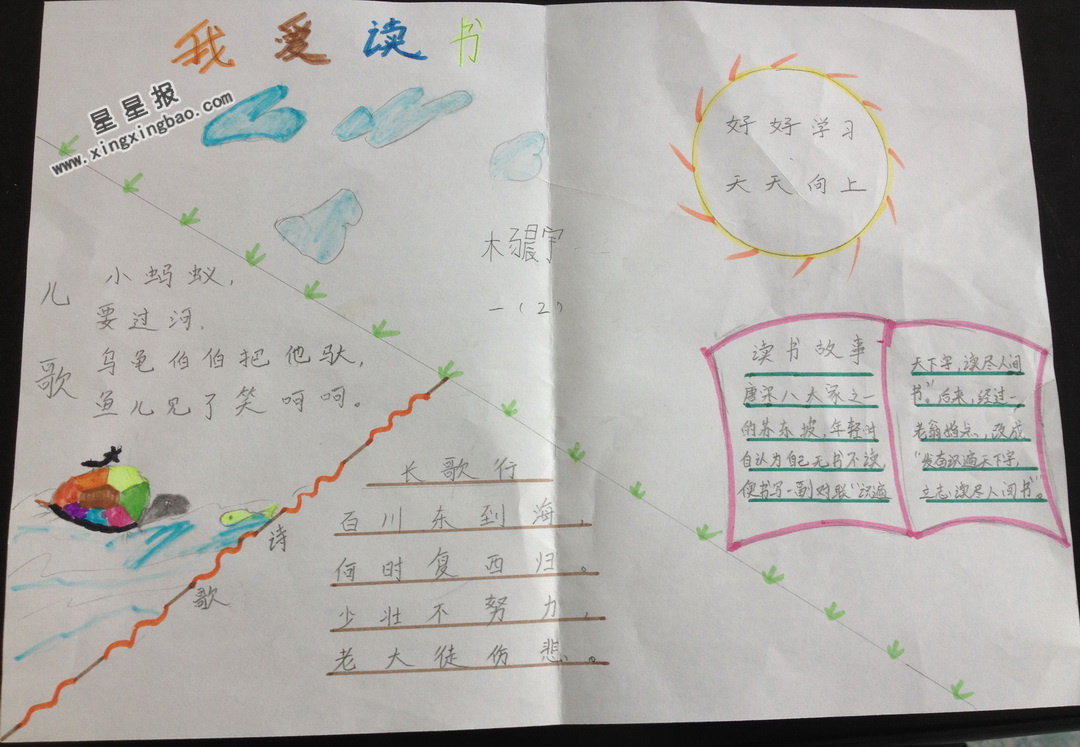 我爱读书
星星报
www.xingxingbao.com
好好学习
天天向上
一(2)
儿歌
小蚂蚁,
要过河.
乌龟伯伯把他驮,
鱼儿见了笑呵呵。
诗歌
长歌行
百川东到海,
何时复西归。
少壮不努力,
老大徒伤悲。
读书故事
唐宋八大家之一
的苏东坡,年轻时
自认为自己无书不读,
便书写一副对联“识遍
天下字,读尽人间
书”。后来,经过一
老翁指点,改成
“发奋识遍天下字,
立志读尽人间书”。